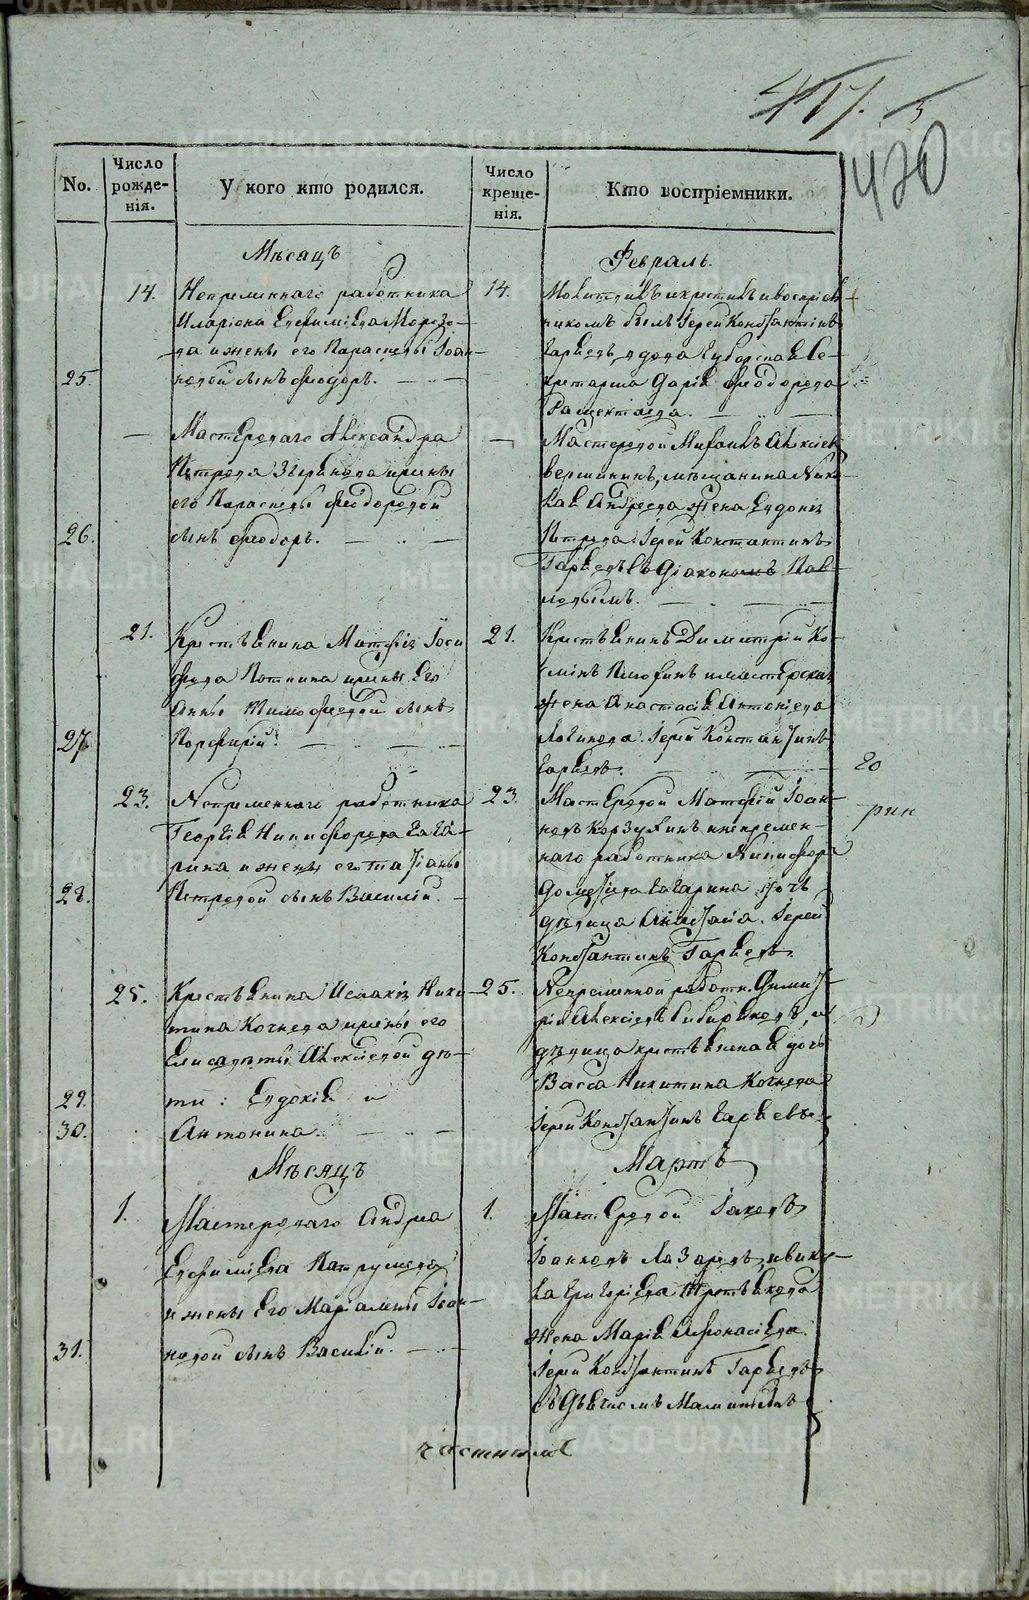 417. 5
420
No.
Число рожденія.
У кого кто родился.
Число крещенія.
Кто воспріемники.
Мѣсяцъ
Февраль.
14.
Непременнаго работника
Иларіона Евфиміева Морозо-
ва и жены его Параскевы Іоан-
25.
новой сынъ Ѳеодоръ.
14.
Молитвилъ и крестилъ и воспріем-
никомъ былъ Іерей Константинъ
Гаряевъ, вдова Губернская Се-
кретарша Дарія Ѳеодорова
Мастероваго Александра
Петрова Зырянова и жены
его Параскевы Ѳеодоровой
26.
сынъ Ѳеодоръ.
Мастеровой Михаилъ Алексіевъ
Вершининъ, мѣщанина Нико-
лая Андреева жена Евдокія
Петрова. Іерей Константинъ
Гаряевъ съ Діакономъ Пав-
ловымъ.
21.
Крестьянина Матѳія Іоси-
фова Потнина и жены его
Анны Тимоѳеевой сынъ
27.
Порфирій.
21.
Крестьянинъ Димитрій Ко-
жена Анастасія Антоніева
Логинова. Іерей Константинъ
Гаряевъ.
20
рин
23.
Непременнаго работника
Георгія Никифорова Гага-
рина и жены его Татіаны
28.
Петровой сынъ Василій.
23.
Мастеровой Матѳій Іоан-
новъ Корзухинъ и непремен-
наго работника Никифора
Дометіева Гагарина дочь
дѣвица Анастасія. Іерей
Константинъ Гаряевъ.
25.
Крестьянина Исаакія Ники-
тина Кочнева и жены его
Елисаветы Алексіевой дѣ-
29.
ти: Евдокія и
30.
Антонина.
25.
Непременной работн. Димит-
рій Алексіевъ Сибиряковъ, и
дѣвица крестьянская дочь
Васса Никитина Кочнева
Іерей Константинъ Гаряевъ.
Мѣсяцъ
Мартъ
1.
Мастероваго Андреа
Евфиміева Патрушева
и жены его Маріамны Іоан-
31.
новой сынъ Василій.
1.
Мастеровой Іаковъ
Іоанновъ Лазаревъ, и Нико-
лая Григоріева
жена Марія Аѳонасіева.
Іерей Константинъ Гаряевъ
съ Дьячкомъ
METRIKI.GASO-URAL.RU